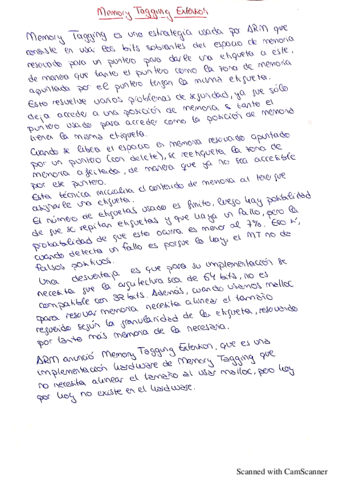 Memory Tagging Extension
Memory Tagging es una estrategia usada por ARM que
consiste en usar los bits sobrantes del espacio de memoria
reservado para un puntero para darle una etiqueta a este,
de manera que tanto el puntero como la zona de memoria
apuntada por ese puntero tengan la misma etiqueta.
Esto resuelve varios problemas de seguridad, ya que sólo
deja acceder a una posición de memoria si tanto el
puntero usado para acceder como la posición de memoria
tiene la misma etiqueta.
Cuando se libera el espacio en memoria reservado apuntado
por un puntero (con delete), se reetiqueta la zona de
memoria afectada, de manera que ya no sea accesible
por ese puntero.
Esta técnica inicializa el contenido de memoria al tener que
asignarle una etiqueta.
El número de etiquetas usadas es finito, luego hay posibilidad
de que se repitan etiquetas y que haya un fallo, pero la
probabilidad de que esto ocurra es menor al 7%. Eso sí,
cuando detecta un fallo es porque lo hay, el MT no da
falsos positivos.
Una desventaja es que para su implementación se
necesita que la arquitectura sea de 64 bits, no es
compatible con 32 bits. Además, cuando usamos malloc
para reservar memoria necesita alinear el tamaño
requerido según la granularidad de la etiqueta, reservando
por tanto más memoria de la necesaria.
ARM anunció Memory Tagging Extension, que es una
implementación hardware de Memory Tagging que
no necesita alinear el tamaño al usar malloc, pero hoy
por hoy no existe en el hardware.
Scanned with CamScanner